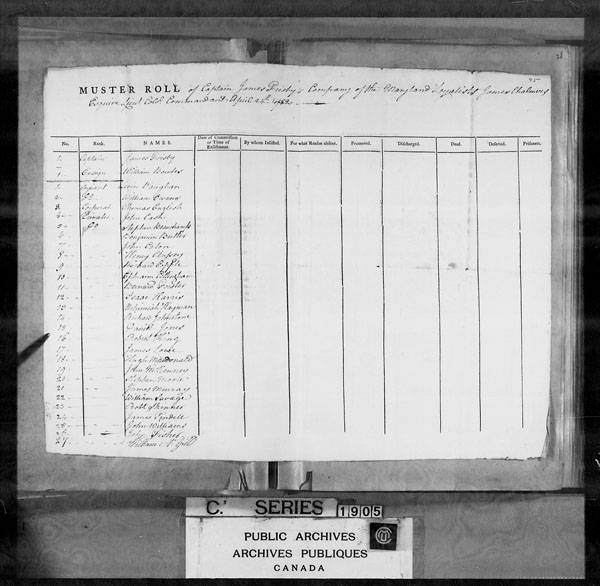 25
MUSTER ROLL of Captain James Frisby's Company of the Maryland Loyalists James Chalmers
Esquire Lieut Colo Commandant April 24th
No. Rank. NAMES. Date of Commission or Time of Enlistment. By whom Enlisted. For what Reason absent. Promoted. Discharged. Dead. Deserted. Prisoners.
1 Captain James Frisby
1 Ensign William Bowles
1 Serjeant Vaughan
2 Do William Owens
3 Corporal Thomas English
4 Privates John Cash
5 Do Stephen Beauchamp
6 Benjamin Butler
7 John
8 Henry
9 Richard
10 Ephraim
11 Bernard
12 Isaac Harris
13 Nehemiah Hayman
14 Johnstone
15 Jones
16 Robert King
17 James Lowe
18 Hugh Macdonald
19 John McKenney
20 Stephen Moore
21 James Murray
22 William Savage
23 Robt
24 James Tyndell
25 John Williams
26 Fisher
27 William
C.' SERIES 1905
PUBLIC ARCHIVES
ARCHIVES PUBLIQUES
CANADA